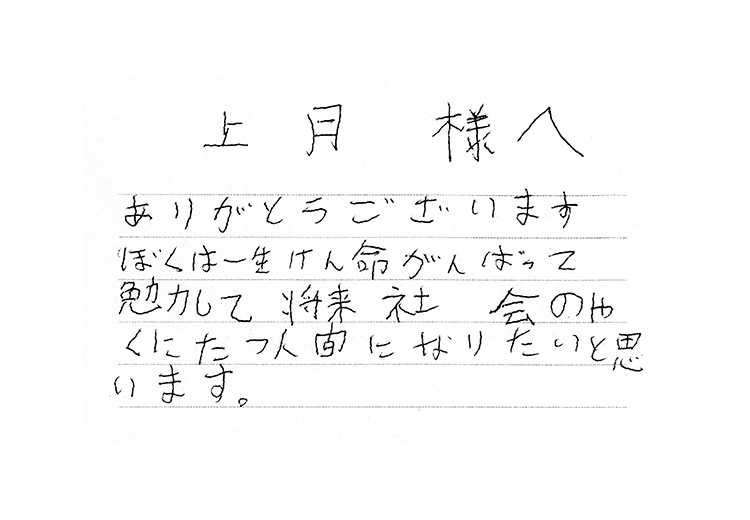 上月 様へ
ありがとうございます
ぼくは一生けん命がんばって
勉強して 将来 社 会のや
くにたつ人間になりたいと思
います。